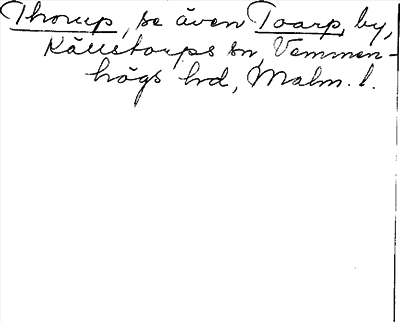 Thorup, se även Toarp, by,
Källstorps sn, Vemmen-
högs hd, Malm. l.